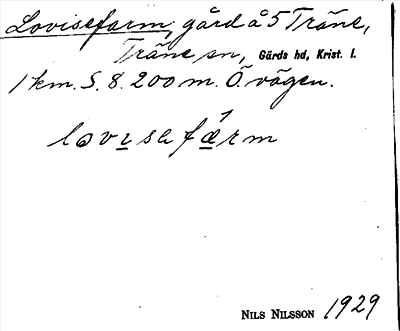 Lovisefarm, gård å 5 Träne,
Träne sn, Gärds hd, Krist. l.
1 km. S. 8. 200 m. Ö. vägen.
lovɪsəfǽrm
NILS NILSSON 1929